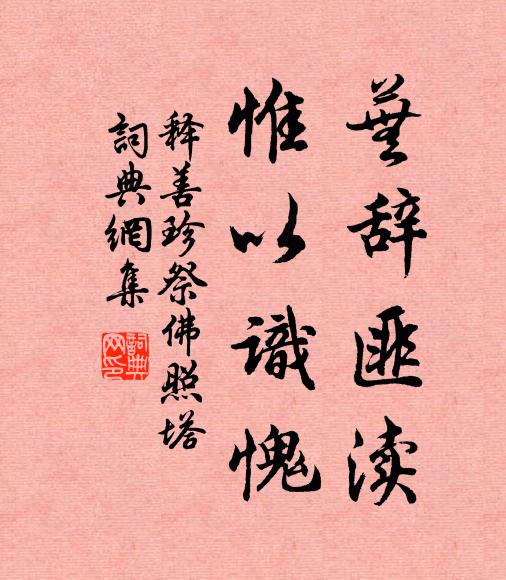 蕪辞匪渎
惟以識愧
释善珍祭佛照塔
詞典網集
詞典網印